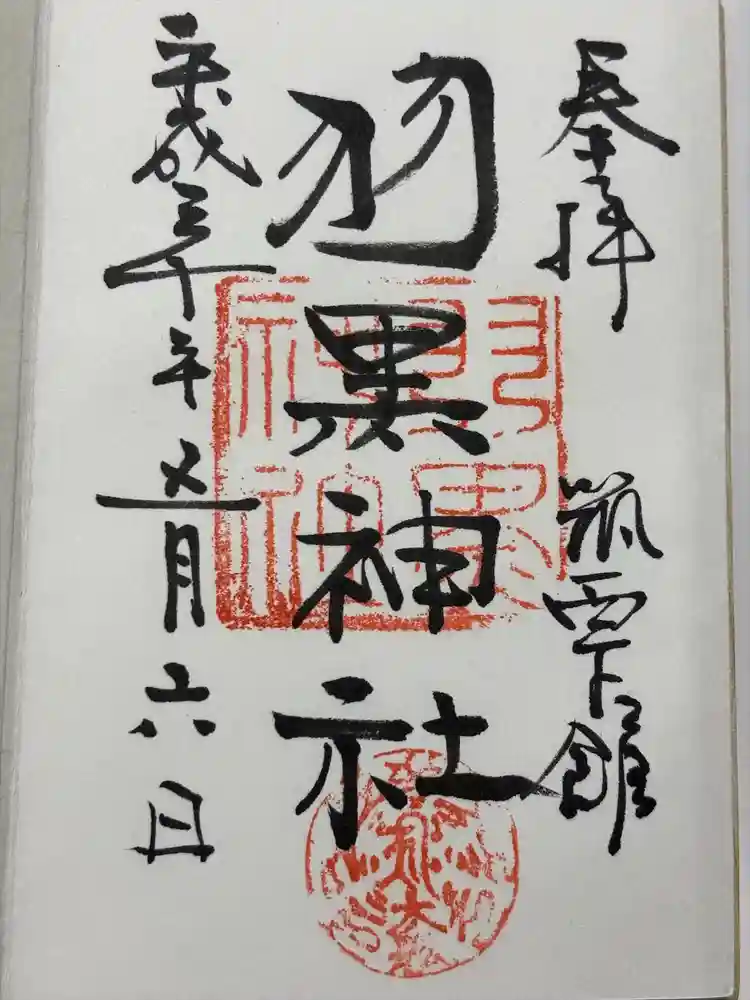 奉拝
筑西下館
羽黒神社
平成三十年五月六日
羽黒
神社